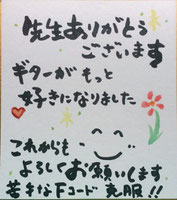 先生ありがとう
ございます
ギターがもっと
好きになりました
これからも
よろしくお願いします
苦手なFコード克服!!